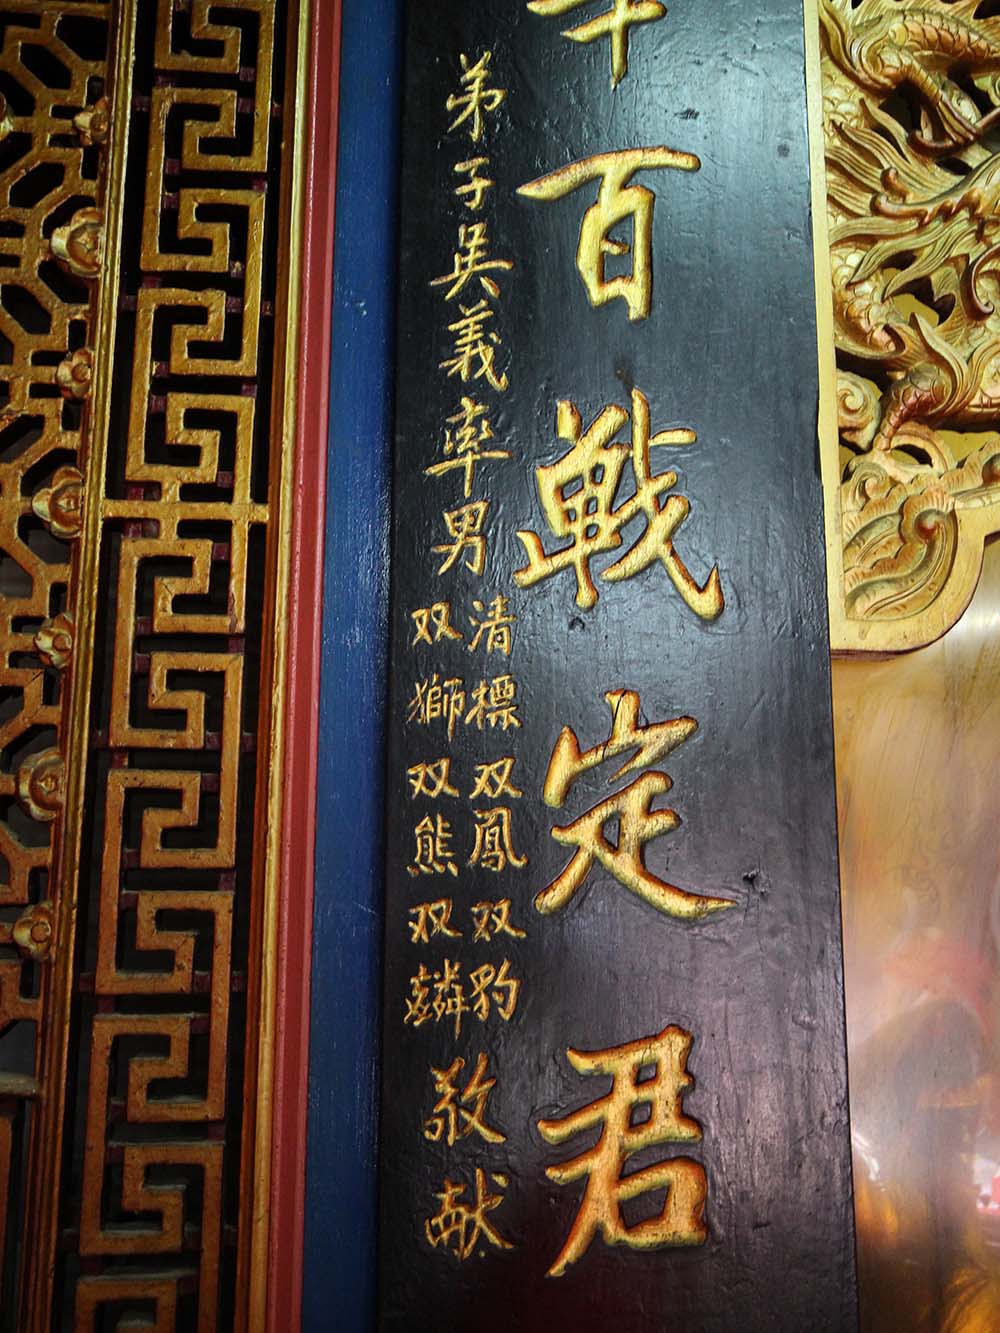 百戰定君
弟子吳義率男
清標双鳳双豹
双獅双熊双麟
敬献